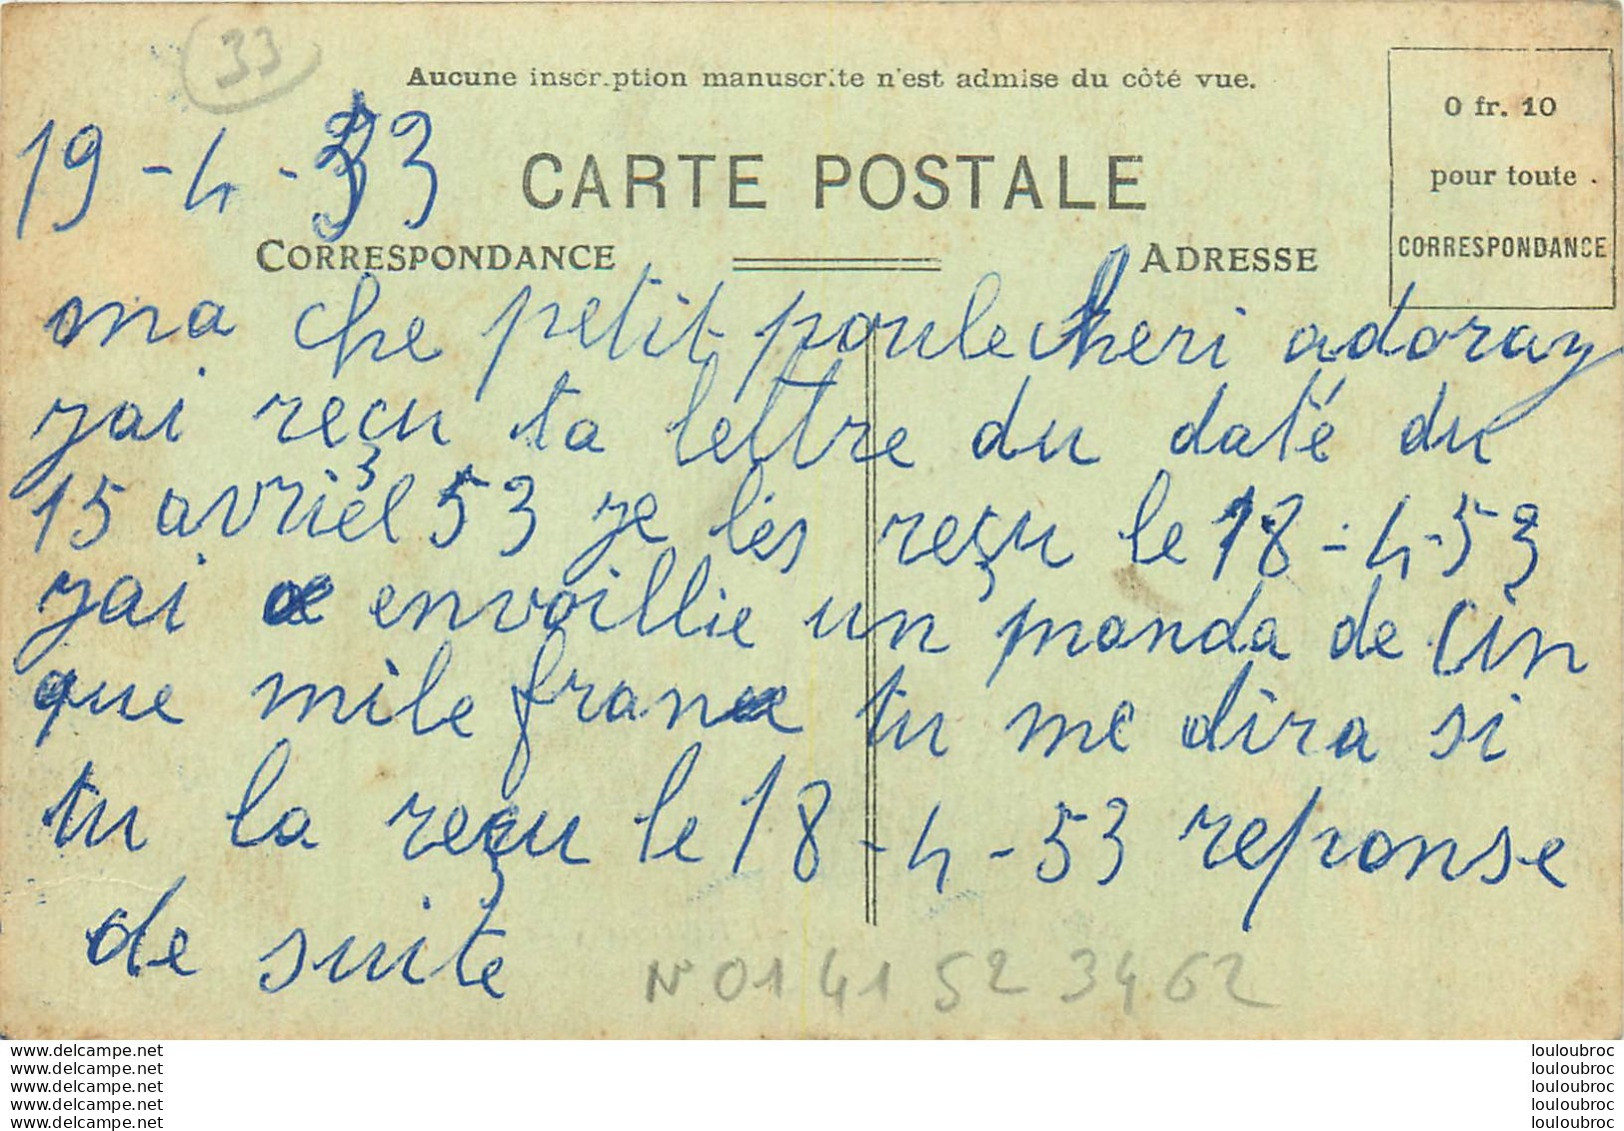 33
Aucune inscription manuscrite n'est admise du côté vue.
0 fr. 10
pour toute
CORRESPONDANCE
19-4-53
CARTE POSTALE
CORRESPONDANCE
ADRESSE
ma che petit poule cheri adoray
jai reçu ta lettre du daté du
15 avriel 53 je les reçu le 18-4-53
jai envoillie un manda de cin
que mile franc tu me dira si
tu la reçu le 18-4-53 reponse
de suite
N° 01 41 52 34 62
www.delcampe.net
www.delcampe.net
www.delcampe.net
www.delcampe.net
www.delcampe.net
louloubroc
louloubroc
louloubroc
louloubroc
louloubroc